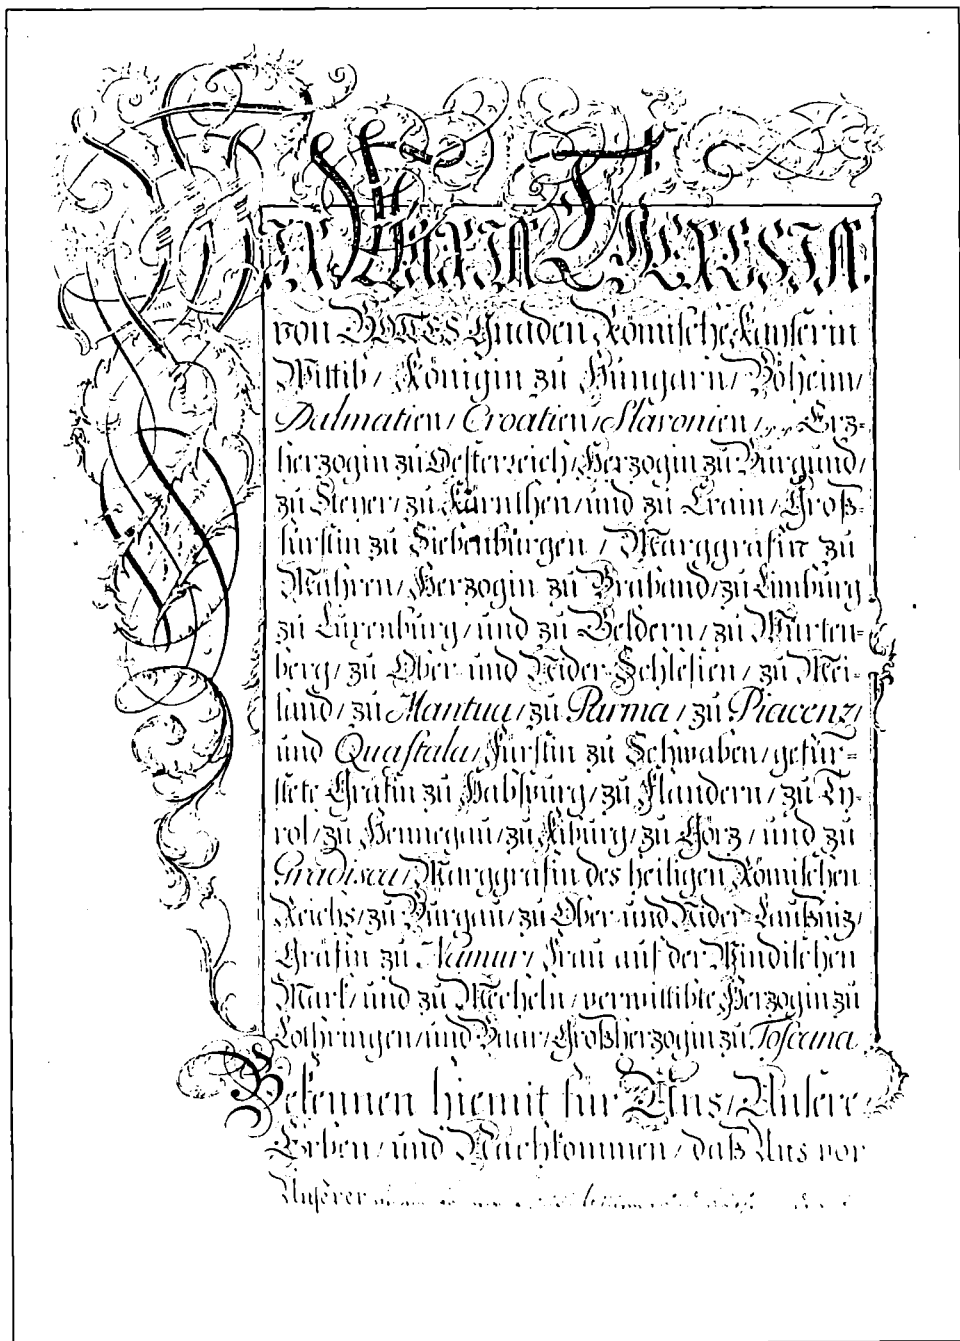 WIR MARIA THERESIA
von GOTTES Gnaden Römische Kayserin
Wittib / Königin zu Hungarn / Böheim /
Dalmatien / Croatien / Slavonien / Erz=
herzogin zu Oesterreich / Herzogin zu Burgund /
zu Steyer / zu Kärnthen / und zu Crain / Groß=
fürstin zu Siebenbürgen / Marggräfin zu
Mähren / Herzogin zu Braband / zu Limburg
zu Luxenburg / und zu Geldern / zu Würten=
berg / zu Ober- und Nider-Schlesien / zu Mei=
land / zu Mantua / zu Parma / zu Piacenz /
und Quastala / Fürstin zu Schwaben / gefür=
stete Gräfin zu Habspurg / zu Flandern / zu Ty=
rol / zu Hennegau / zu Kiburg / zu Görz / und zu
Gradisca / Marggräfin des heiligen Römischen
Reichs / zu Burgau / zu Ober- und Nider-Laußniz /
Gräfin zu Namur / Frau auf der Windischen
Mark / und zu Mecheln / verwittibte Herzogin zu
Lothringen / und Baar / Großherzogin zu Toscana
Bekennen hiemit für Uns / Unsere
Erben / und Nachkommen / daß Uns vor
Unserer